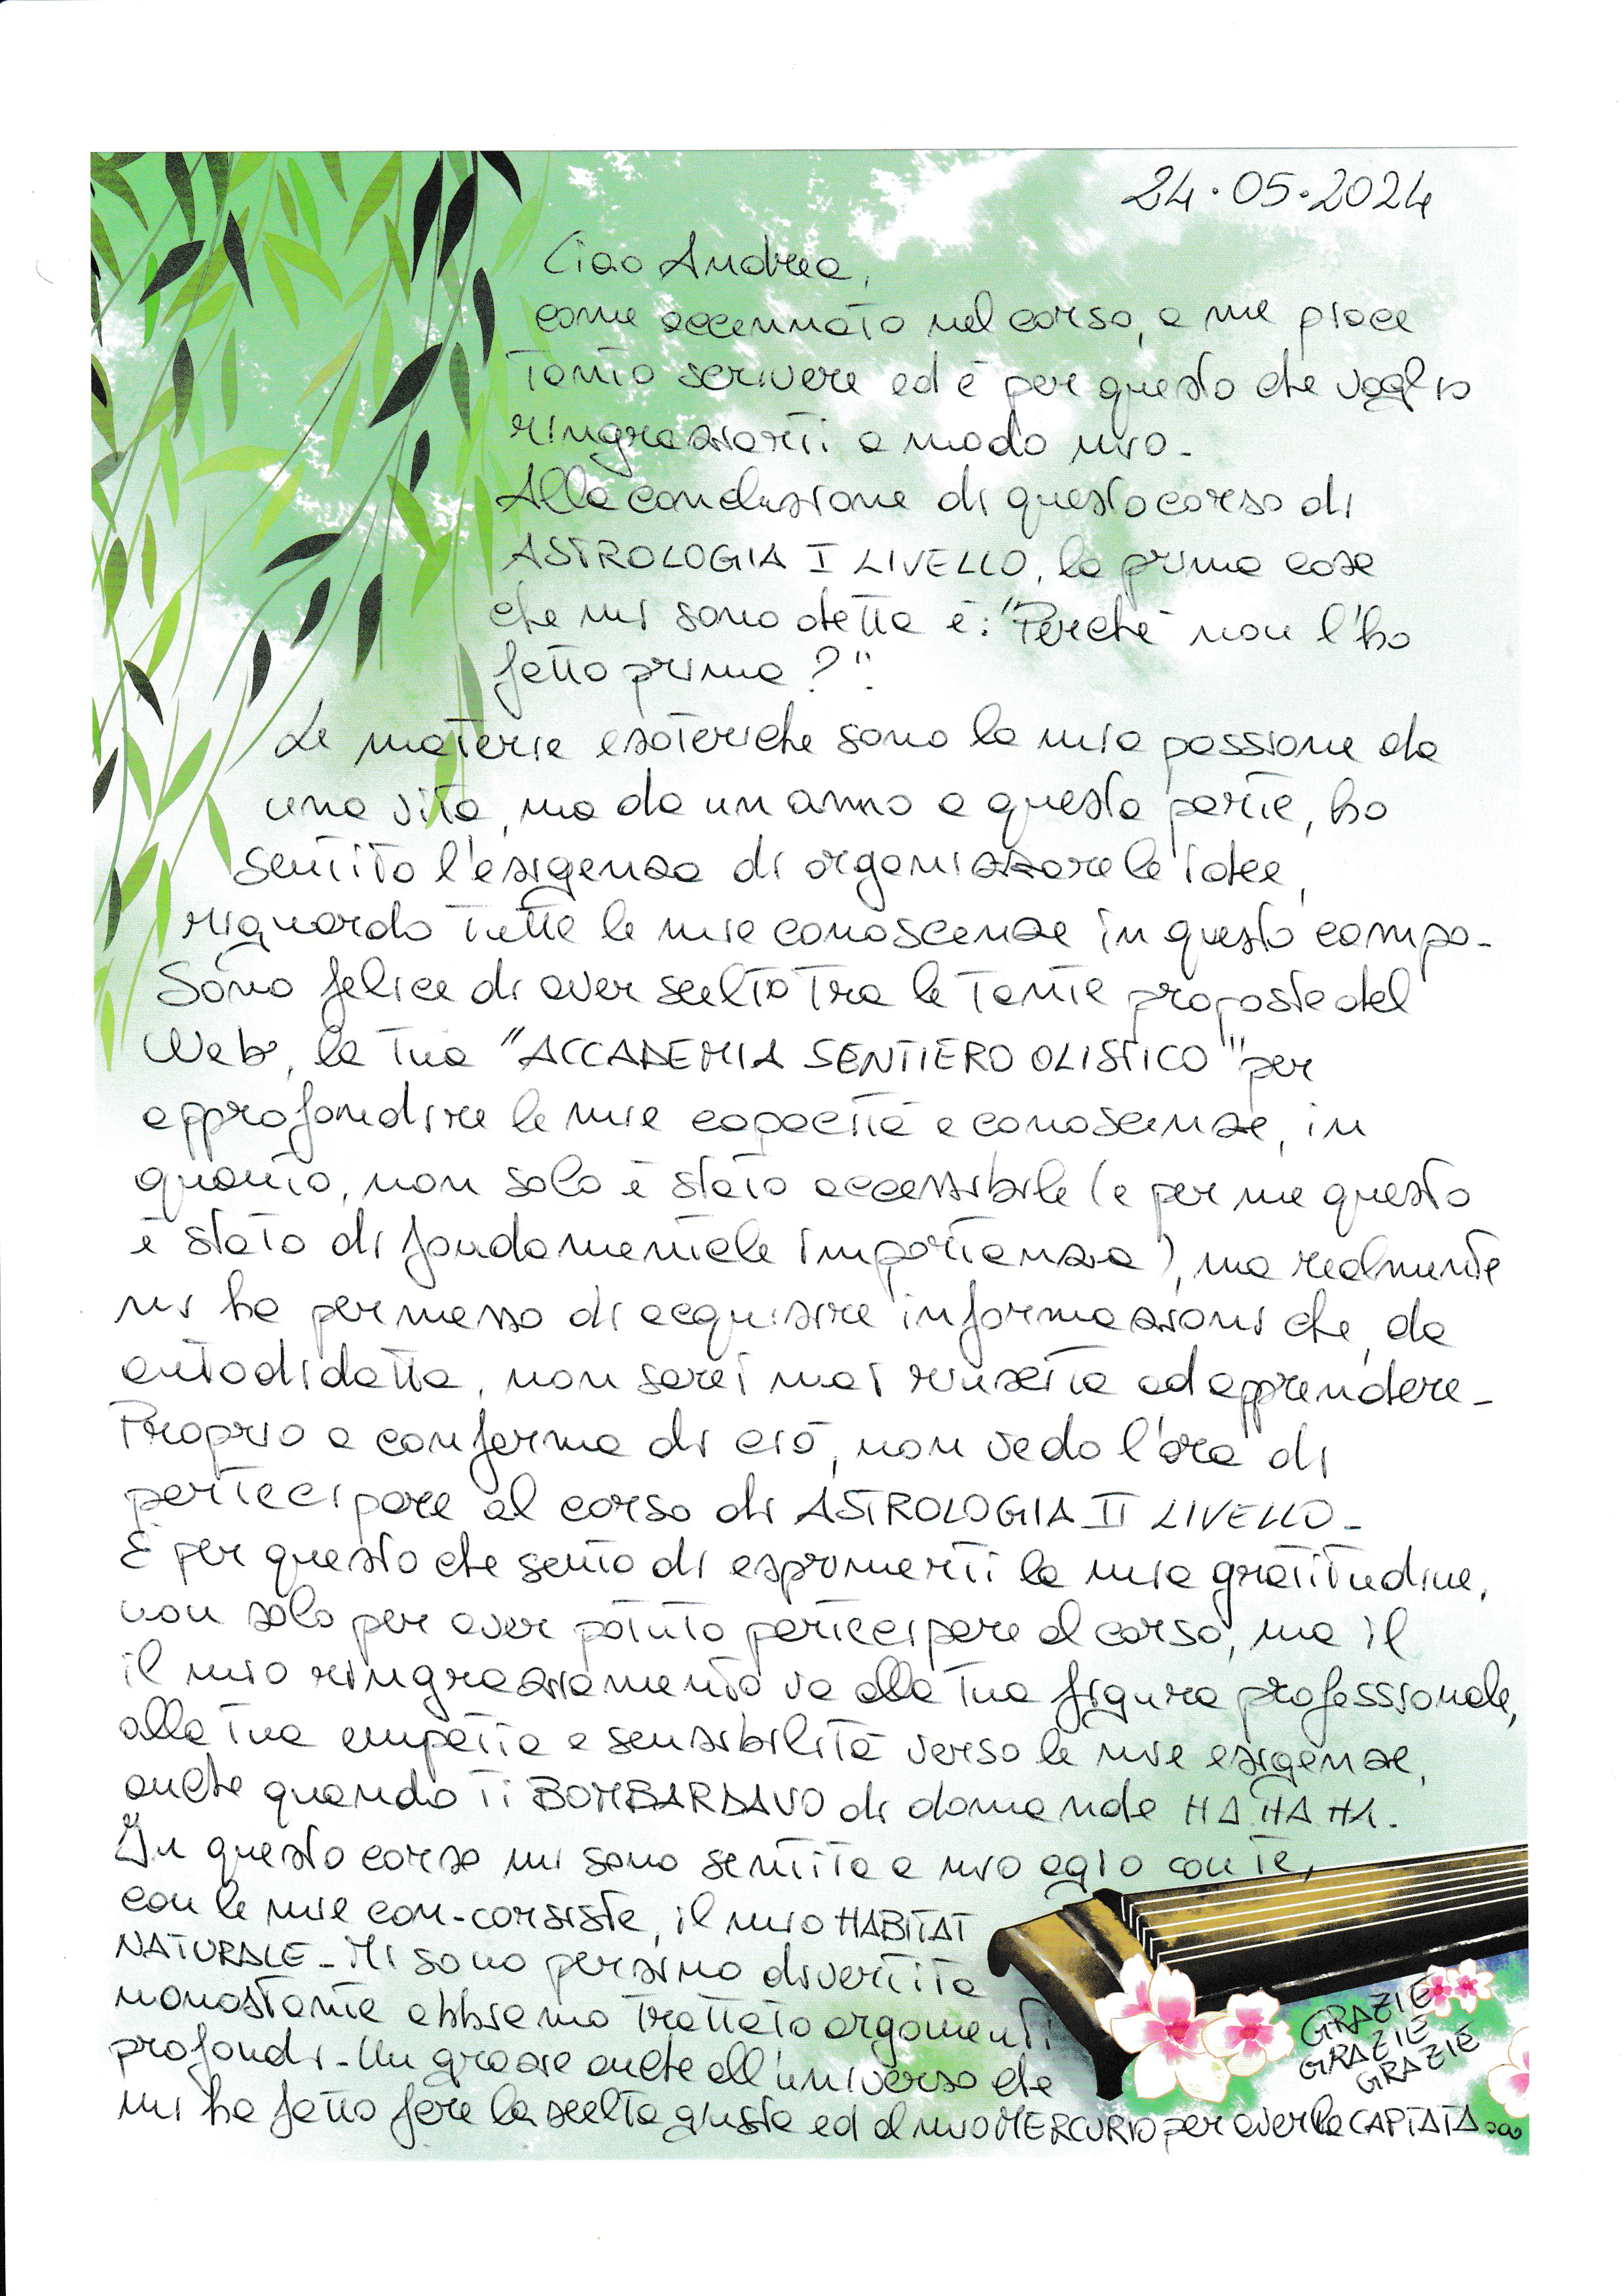 24.05.2024
Ciao Andrea,
come accennato nel corso, a me piace
tanto scrivere ed è per questo che voglio
ringraziarti a modo mio-
Alla conclusione di questo corso di
ASTROLOGIA I LIVELLO, la prima cosa
che mi sono detta è: "Perchè non l'ho
fatto prima?".
Le materie esoteriche sono la mia passione da
una vita, ma da un anno a questa parte, ho
sentito l'esigenza di organizzare le idee,
riguardo tutte le mie conoscenze in questo campo-
Sono felice di aver scelto tra le tante proposte del
Web, la tua "ACCADEMIA SENTIERO OLISTICO" per
approfondire le mie capacità e conoscenze, in
quanto, non solo è stato accessibile (e per me questo
è stato di fondamentale importanza), ma realmente
mi ha permesso di acquisire informazioni che, da
autodidatta, non sarei mai riuscita ad apprendere-
Proprio a conferma di ciò, non vedo l'ora di
partecipare al corso di ASTROLOGIA II LIVELLO-
È per questo che sento di esprimerti la mia gratitudine,
non solo per aver potuto partecipare al corso, ma il
il mio ringraziamento va alla tua figura professionale,
alla tua empatia e sensibilità verso le mie esigenze,
anche quando ti BOMBARDAVO di domande HA HA HA.
In questo corso mi sono sentita a mio agio con te,
con le mie con-corsiste, il mio HABITAT
NATURALE- Mi sono persino divertita
nonostante abbiamo trattato argomenti
profondi- Un grazie anche all'universo che
mi ha fatto fare la scelta giusta ed al mio MERCURIO per averla CAPTATA...
GRAZIE
GRAZIE
GRAZIE